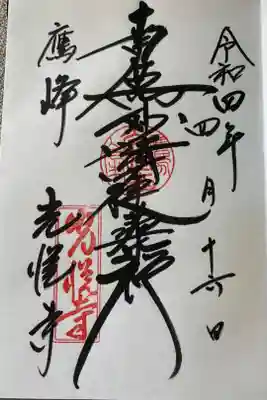 令和四年四月十六日
南無妙法蓮華経
鷹峰
光悦寺
光悦寺